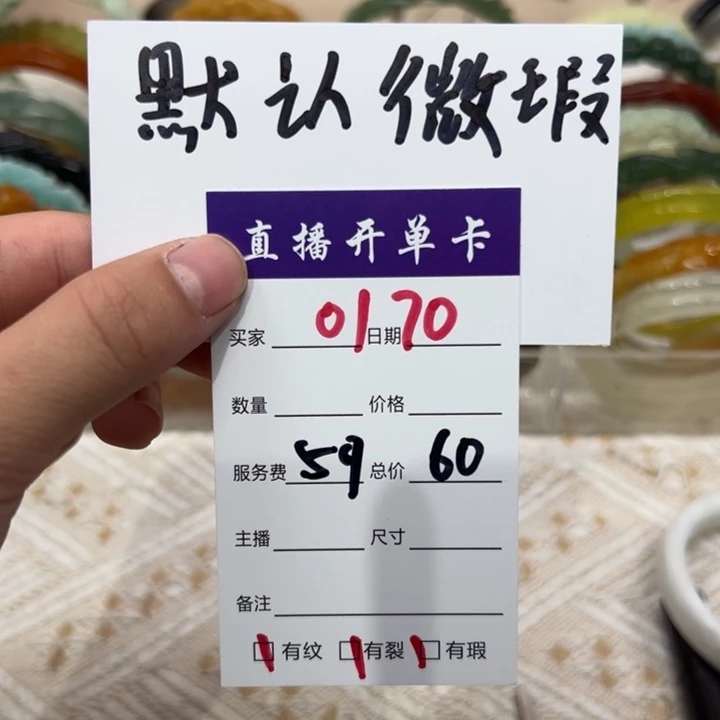 默认微瑕
直播开单卡
买家 01 日期 70
数量 价格
服务费 59 总价 60
主播 尺寸
备注
有纹 有裂 有瑕